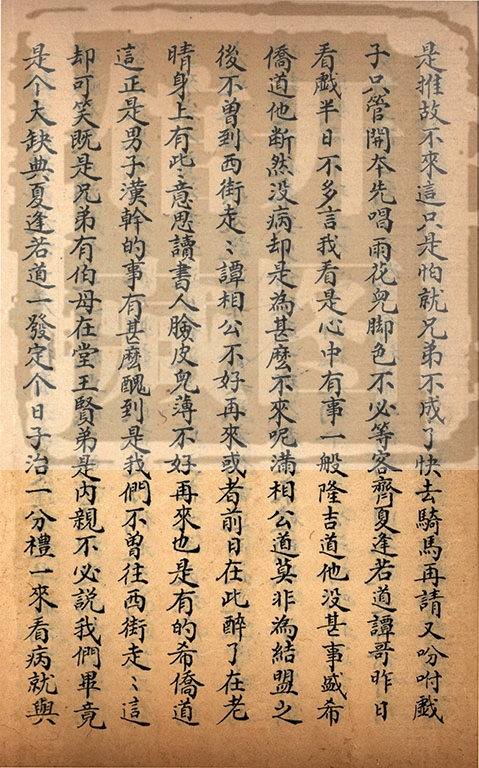 是推故不來這只是怕就兄弟不成了快去騎馬再請又吩咐戲
子只管開夲先唱兩花兒脚色不必等客齊夏逢若道譚哥昨日
看戲半日不多言我看是心中有事一般隆吉道他沒甚事盛希
僑道他断然没病却是為甚麽不來呢滿相公道莫非為結盟之
後不曾到西街走〻譚相公不好再來或者前日在此醉了在老
晴身上有些意思讀書人臉皮兒薄不好再來也是有的希僑道
這正是男子漢幹的事有甚麽醜到是我們不曾往西街走〻這
却可笑既是兄弟有伯母在堂王賢弟是內親不必説我們畢竟
是个大缺典夏逢若道一發定个日子治一分禮一來看病就與